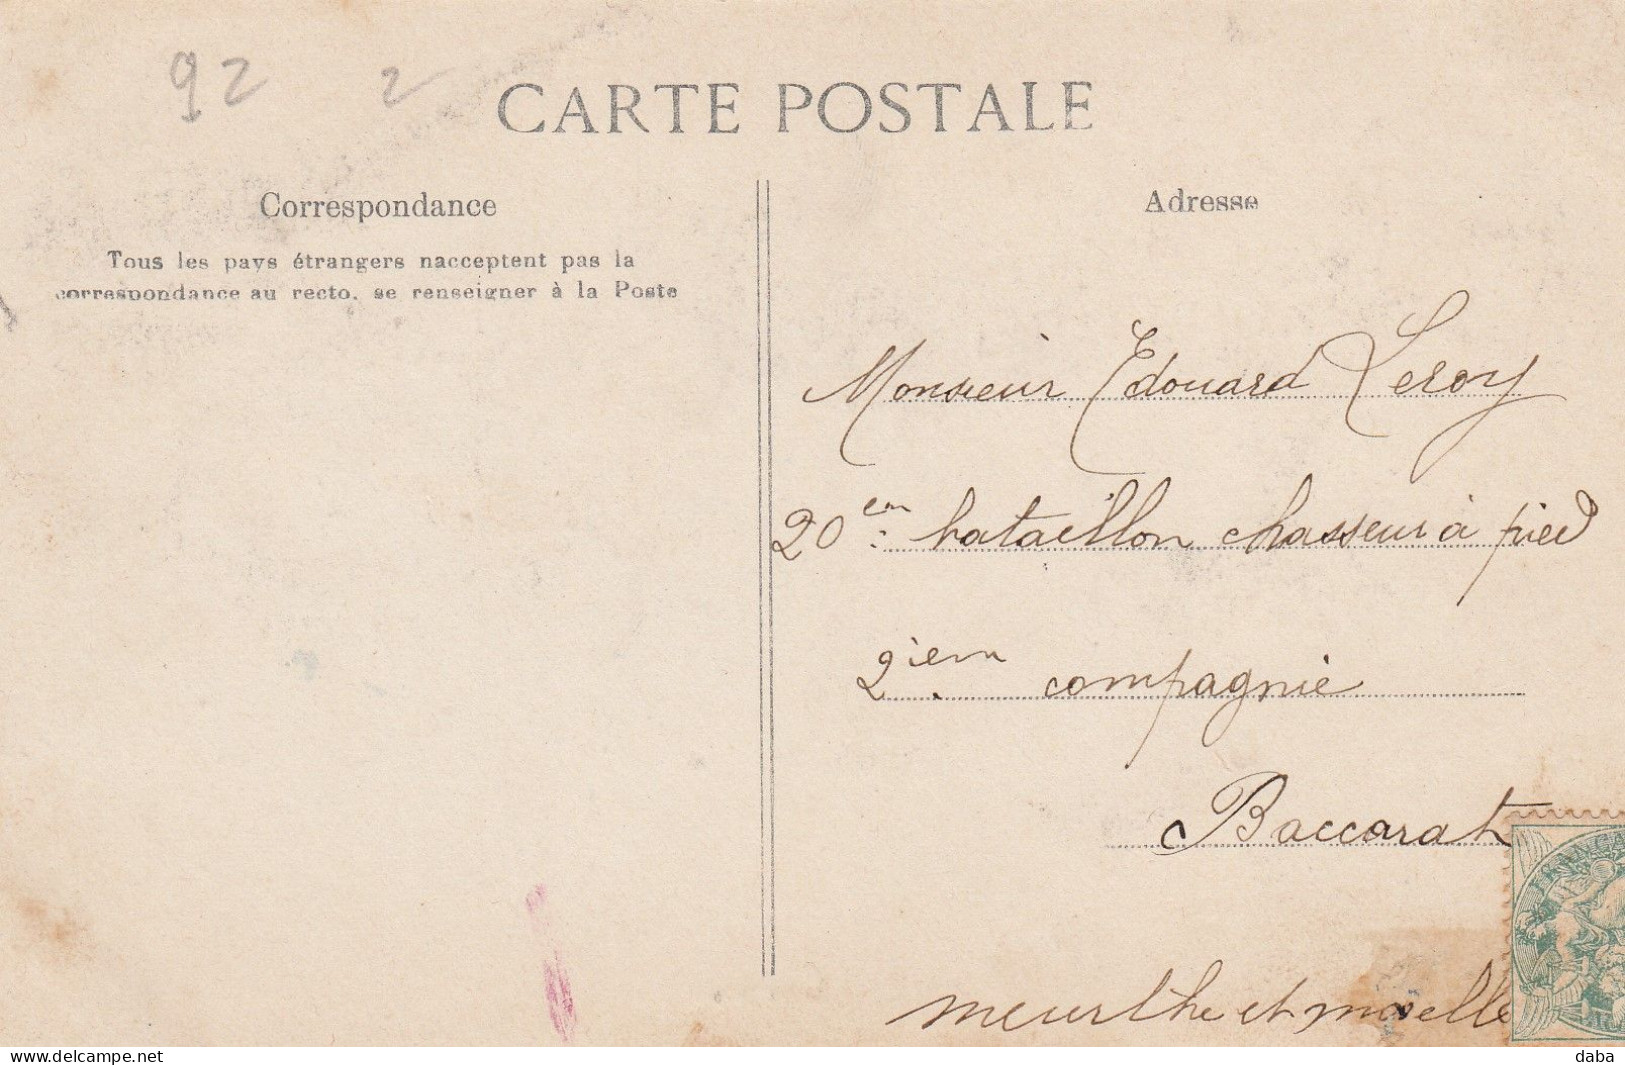 92 2
CARTE POSTALE
Correspondance
Tous les pays étrangers nacceptent pas la
correspondance au recto, se renseigner à la Poste
Adresse
Monsieur Edouard Leroy
20em: bataillon chasseur à pied
2iem. compagnie
Baccarat
meurthe et moselle
daba
www.delcampe.net